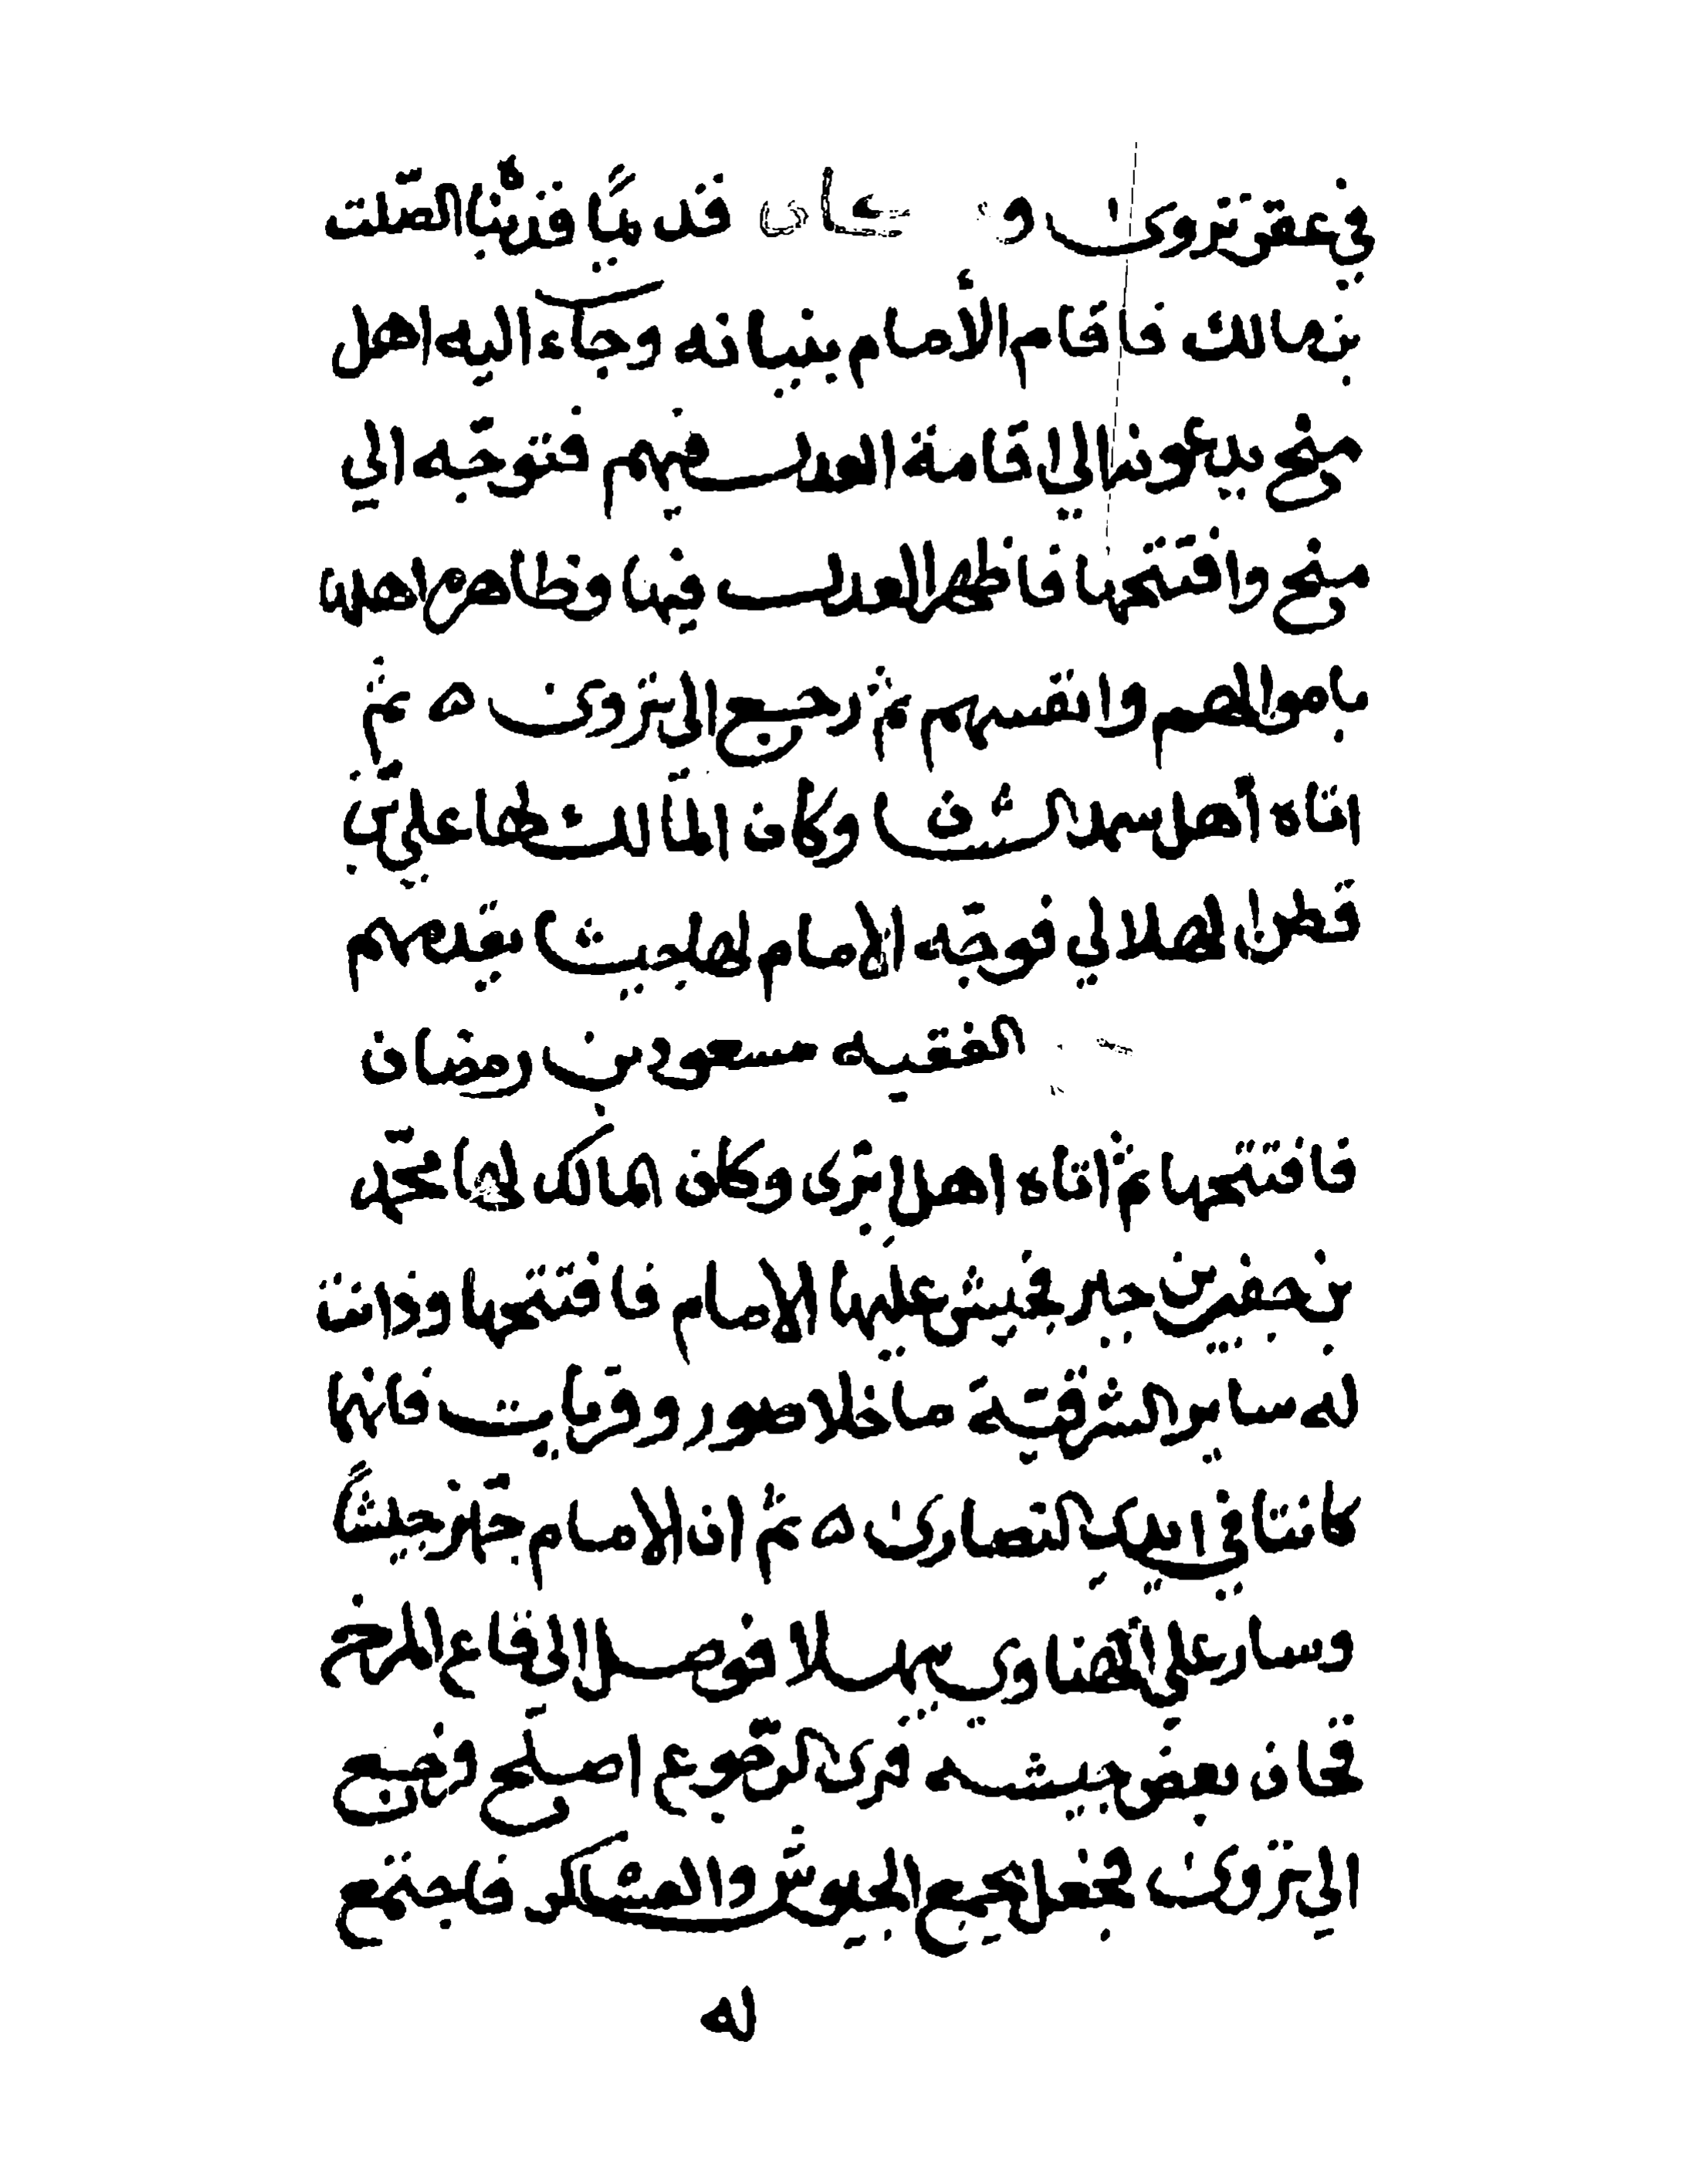 في عقر نزوى وكان قديمًا قد بناه الصّلت
بن مالك فاقام الأمام بنيانه وجآء اليه اهل
منح يدعونه الي اقامة العدل فيهم فتوجّه الي
منح وافتتحها فاظهر العدل فيها وظاهره اهلها
باموالهم وانفسهم ثم رجع الي نزوى ٥ ثم
اتاه أهل سمد الشان وكان المالك لها علي بن
قطن الهلالي فوجّه الامام لها جيشا يقدمهم
الفقيه مسعود بن رمضان
فافتتحها ثم اتاه اهل ابرى وكان المالك لها محمّد
بن جفير بن جبر فجيش عليها الامام فافتتحها ودانت
له ساير الشرقيّة ما خلا صور وقريات فانهما
كانتا في ايدي النصارى ٥ ثم ان الامام جهّز جيشًا
وسار علي الهناوي بهلا فوصل الى قاع المرخ
فخان بعض جيشه فرى الرّجوع اصلح فرجع
الي نزوى فجعل يجمع الجيوش والعساكر فاجتمع
له